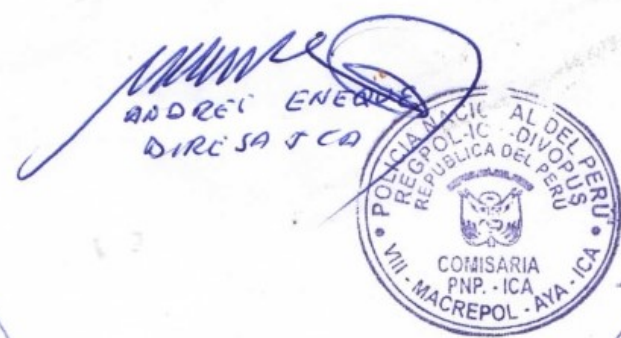 ANDREI ENEQUE
DIRESA ICA
POLICIA NACIONAL DEL PERU
REGPOL-IC -DIVOPUS
REPUBLICA DEL PERU
COMISARIA
PNP. - ICA
VIII - MACREPOL - AYA - ICA